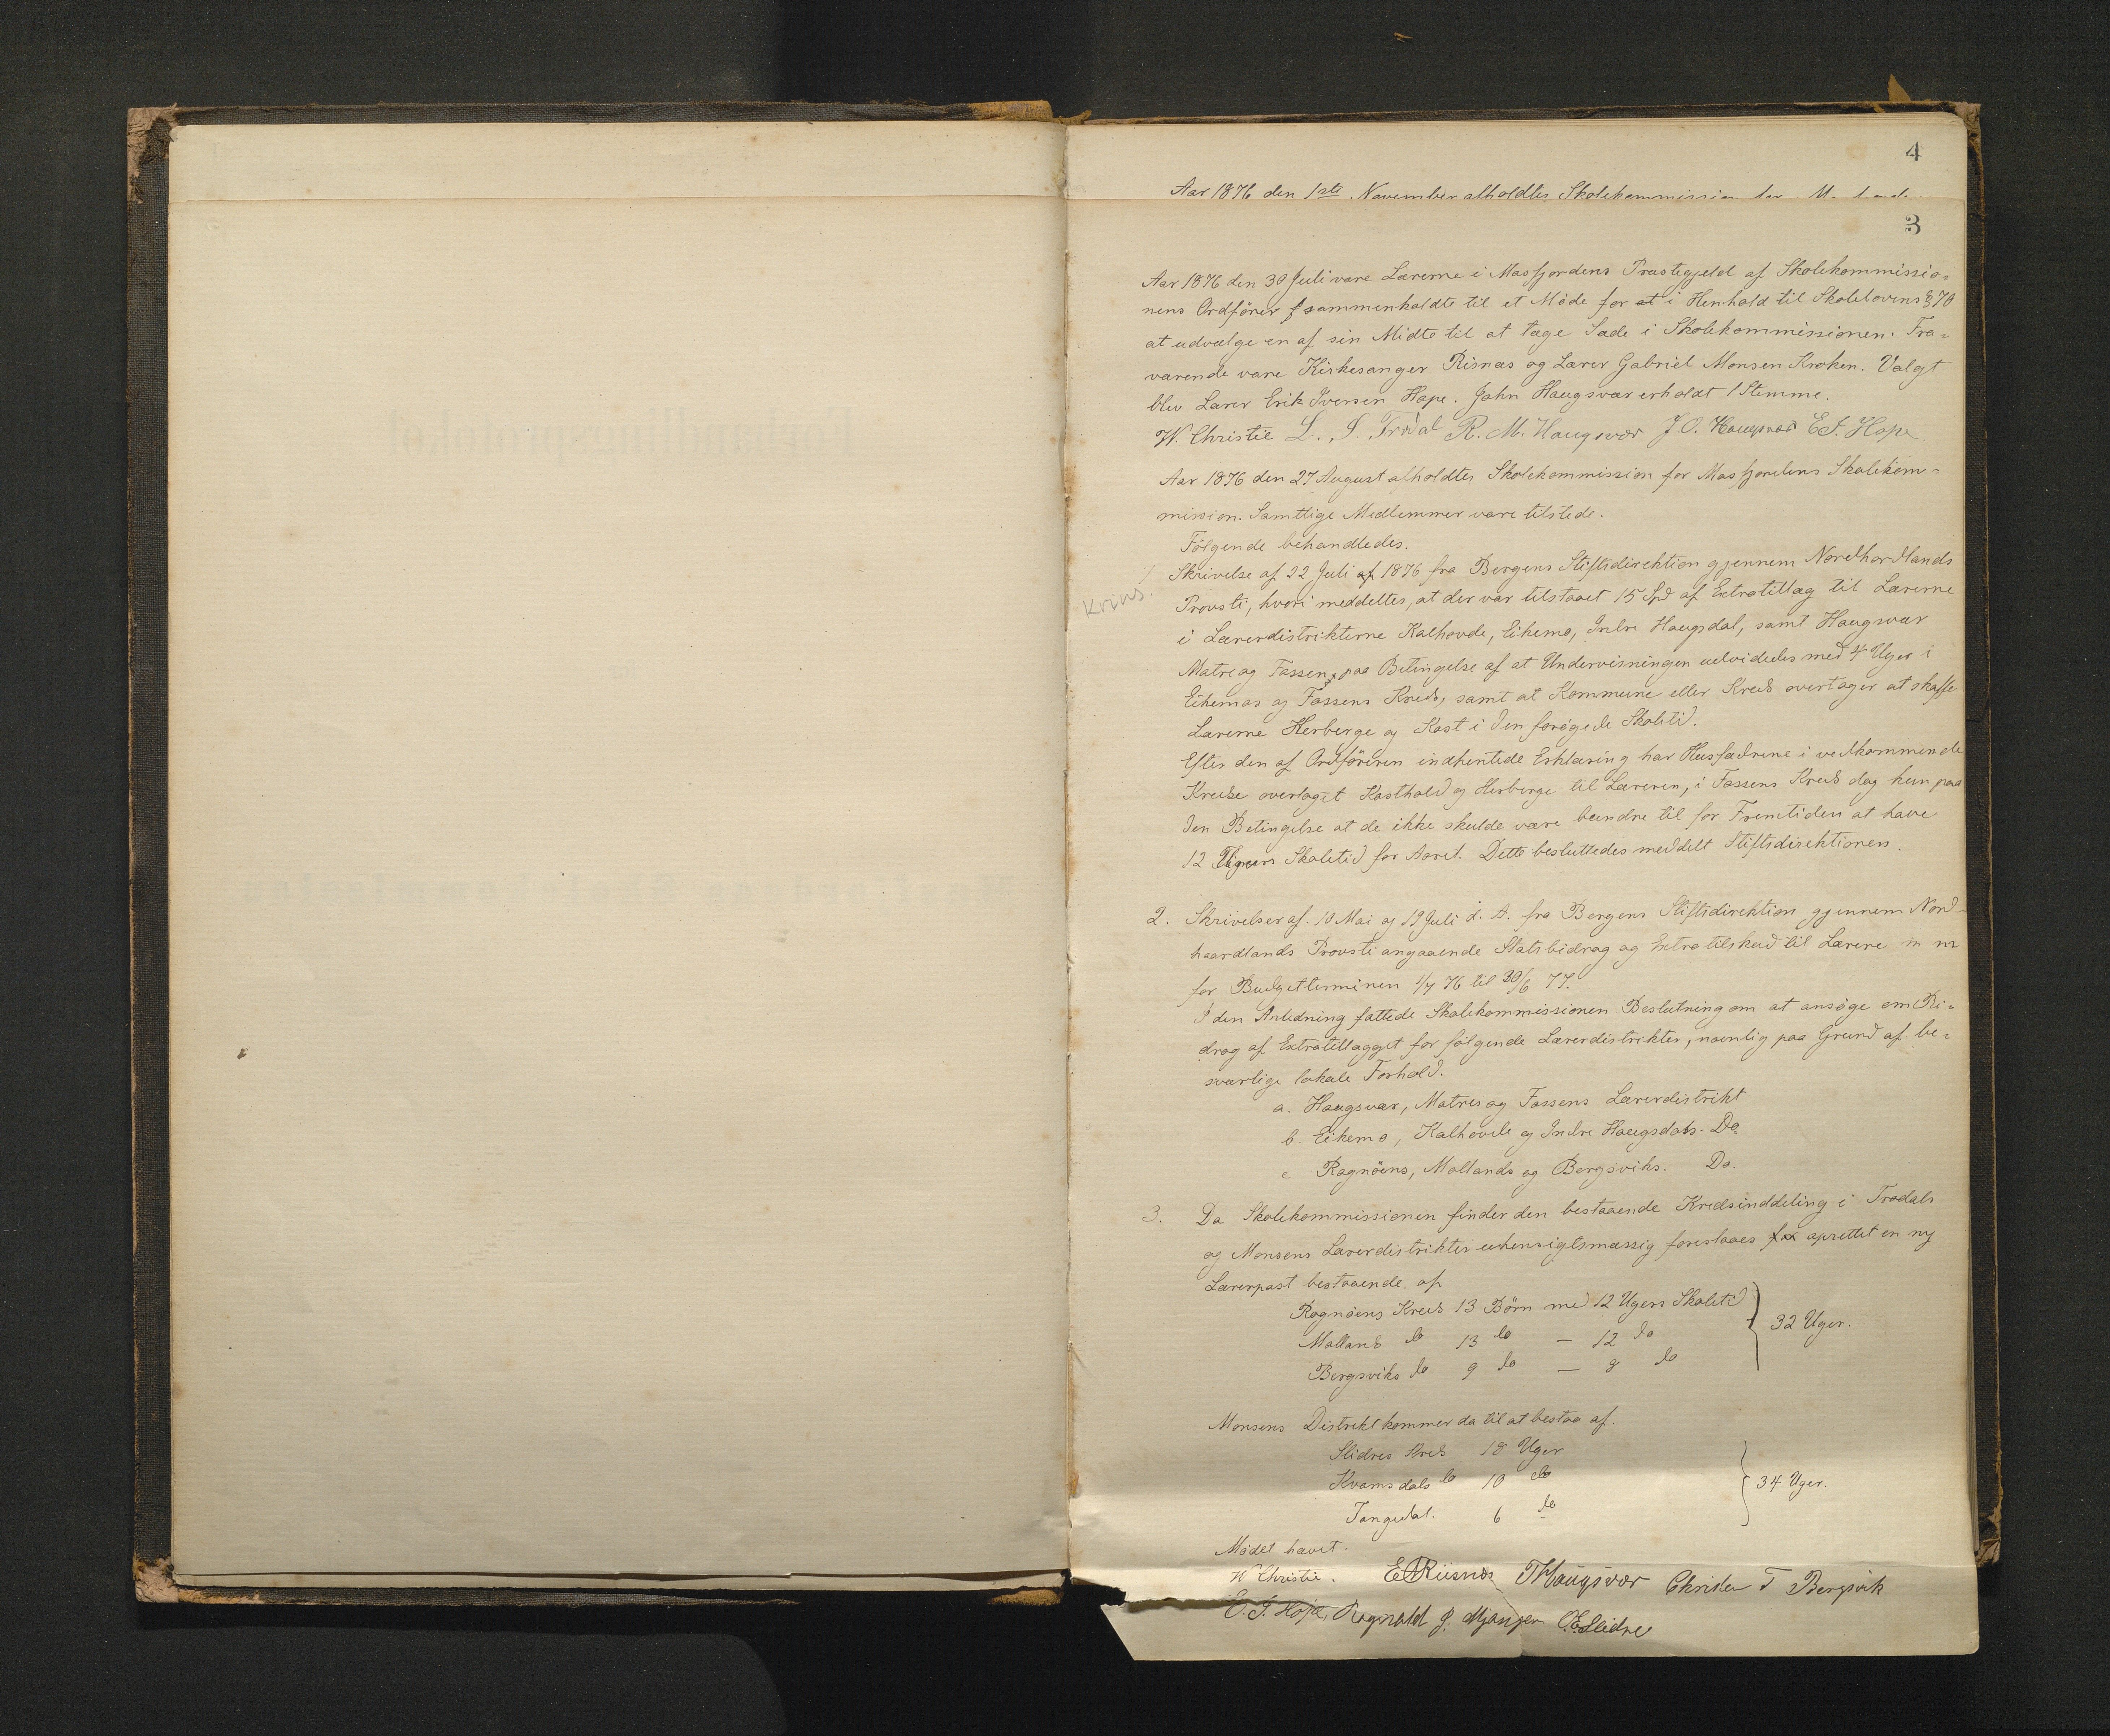 4
Aar 1876 den 1ste November afholdtes Skolekommission for
3
Aar 1876 den 30 Juli vare Lærerne i Masfjordens Præstegjeld af Skolekommissio=
nens Ordfører sammenkaldte til et Møde for at i Henhold til Skolelovens § 70
at udvælge en af sin Midte til at tage Sæde i Skolekommissionen. Fra=
værende vare Kirkesanger Risnæs og Lærer Gabriel Monsen Kroken. Valgt
blev Lærer Erik Iversen Hope. John Haugsvær erholdt 1 Stemme.
W. Christie L. S. Trodal R. M. Haugsvær J. O. Haugsvær E. I. Hope
Aar 1876 den 27 August afholdtes Skolekommission for Masfjordens Skolekom=
mission. Samtlige Medlemmer vare tilstede.
Følgende behandledes.
1 Skrivelse af 22 Juli af 1876 fra Bergens Stiftsdirektion gjennem Nordhordlands
Provsti, hvori meddeltes, at der var tilstaaet 15 Spd af Extratillæg til Lærerne
i Lærerdistrikterne Kalhovde, Eikemo, Indre Haugsdal, samt Haugsvær
Matre og Fassen, paa Betingelse af at Undervisningen udvidedes med 4 Uger i
Eikemos og Fossens Kreds, samt at Kommune eller Kreds overtager at skaffe
Lærerne Herberge og Kost i den forøgede Skoletid.
Efter den af Ordføreren indhentede Erklæring har Husfædrene i vedkommende
Kredse overtaget Kosthold og Herberge til Læreren, i Fassens Kreds dog kun paa
den Betingelse at de ikke skulde være bundne til for Fremtiden at have
12 Ugers Skoletid for Aaret. Dette besluttedes meddelt Stiftsdirektionen.
2. Skrivelser af 10 Mai og 19 Juli d. A. fra Bergens Stiftsdirektion gjennem Nord-
haardlands Provsti angaaende Statsbidrag og Extratilskud til Lærere m m
for Budgetterminen 1/7 76 til 30/6 77.
I den Anledning fattede Skolekommissionen Beslutning om at ansøge om Bi=
drag af Extratillægget for følgende Lærerdistrikter, navnlig paa Grund af be=
sværlige lokale Forhold.
a. Haugsvær, Matres og Fassens Lærerdistrikt
b. Eikemo, Kalhovde og Indre Haugsdals. Do
c Ragnøens, Mollands og Bergsviks. Do.
3. Da Skolekommissionen finder den bestaaende Kredsinddeling i Trodals
og Monsens Lærerdistrikter uhensigtsmæssig foreslaaes oprettet en ny
Lærerpost bestaaende af
Ragnøens Kreds 13 Børn med 12 Ugers Skoletid
Mollands do 13 do — 12 do
Bergsviks do 9 do — 8 do
32 Uger.
Monsens Distrikt kommer da til at bestaa af.
Slidres Kreds 18 Uger
Kvamsdals do 10 do
Tangedal. 6 do
34 Uger.
Mødet hævet.
W Christie. E Riisnæs Haugsvær Christen T Bergsvik
E. I. Hope, Ragnald J. Mjanger O E Slidre